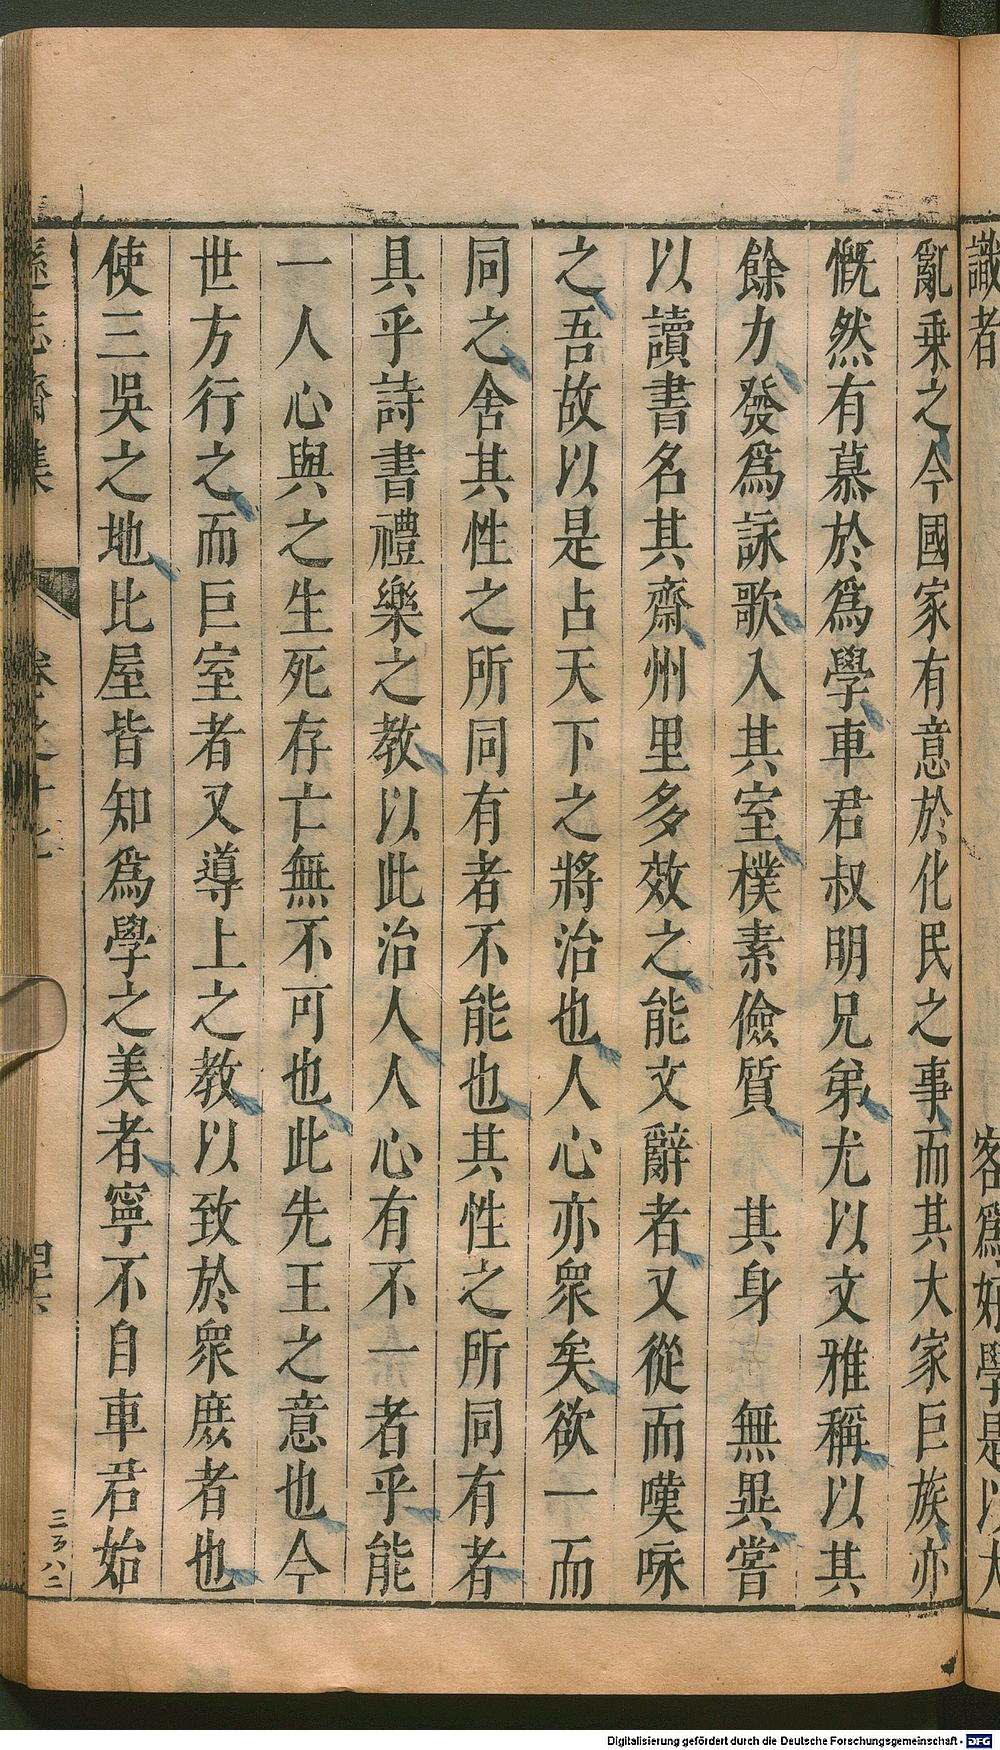 識者
客爲好學是以大
亂乗之今國家有意於化民之事而其大家巨族亦
慨然有慕於爲學車君叔明兄弟尤以文雅稱以其
餘力發爲詠歌入其室樸素儉質 其身 無異嘗
以讀書名其齋州里多效之能文辭者又從而嘆咏
之吾故以是占天下之將治也人心亦衆矣欲一而
同之舍其性之所同有者不能也其性之所同有者
具乎詩書禮樂之教以此治人人心有不一者乎能
一人心與之生死存亡無不可也此先王之意也今
世方行之而巨室者又導上之教以致於衆庶者也
使三吳之地比屋皆知爲學之美者寧不自車君始
遜志齋集 卷之十七 四六
三ヲ八二
Digitalisierung gefördert durch die Deutsche Forschungsgemeinschaft - DFG